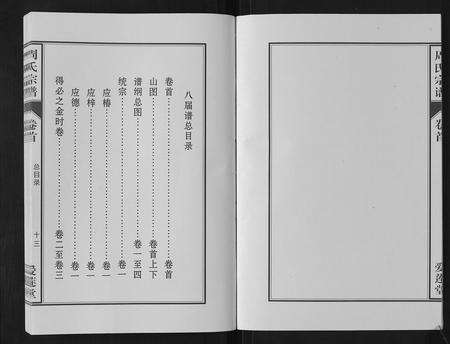 八届谱总目录
卷首……………………卷首
山图……………………卷首上下
谱纲总图………………卷一至四
统宗……………………卷一
应椿……………………卷一
应梓……………………卷一
应德……………………卷一
得必之金时卷…………卷二至卷三
周氏宗谱
卷首
总目录
十三
爱莲堂
周氏宗谱
卷首
爱莲堂